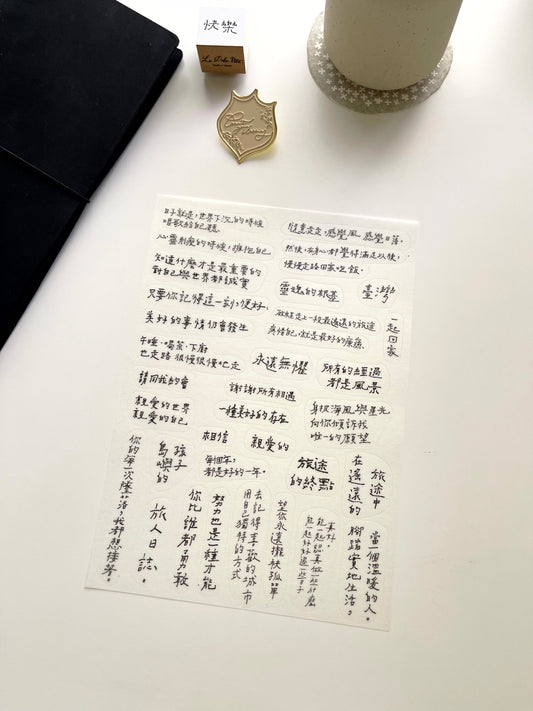 快樂
La Dolce Vita
日子就是，世界下沉的時候
唱歌給自己聽。
心靈削瘦的時候，擁抱自己
知道什麼才是最重要的
對自己與世界都誠實
只要你記得這一刻，便好。
美好的事情切會發生
午睡、喝茶、下廚
也走路 很慢很慢地走
請回我的會
親愛的世界
親愛的自己
隨意走走，感覺風 感覺日落。
然後，在身心都覺得滿足以後，
慢慢走路回家吃飯。
靈魂的根莖
臺灣
一起回家
永遠無懼
所有的經過
都是風景
謝謝所有相遇
一種美好的存在
身披海風與星光
向你傾訴我
唯一的願望
相信
親愛的
每個年，
都是好的一年。
旅途
的終點
旅途中
在遙遠的
孩子
島嶼的
你的每一次陸沉，我都想接著。
旅人日誌。
努力也是一種才能
你比誰都勇敢
去記得喜歡的城市
用自己獨特的方式
望你永遠擺梜孤單
真好。
能一起認真做一些什麼
能一起好好過一些日子
當一個溫暖的人。
腳踏實地生活，